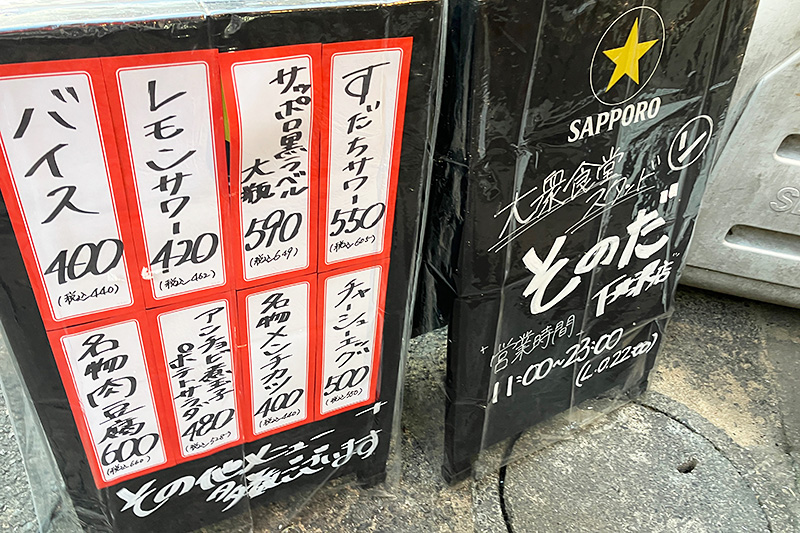 すだちサワー
550
(税込605)
サッポロ黒ラベル
大瓶
590
(税込649)
レモンサワー
420
(税込462)
バイス
400
(税込440)
チャーシューエッグ
500
(税込550)
名物メンチカツ
400
(税込440)
アンチョビ煮玉子
ポテトサラダ
480
(税込528)
名物肉豆腐
600
(税込660)
その他メニュー
多数ございます
SAPPORO
大衆食堂
スタンド
そのだ
営業時間
11:00~23:00
(L.O.22:00)